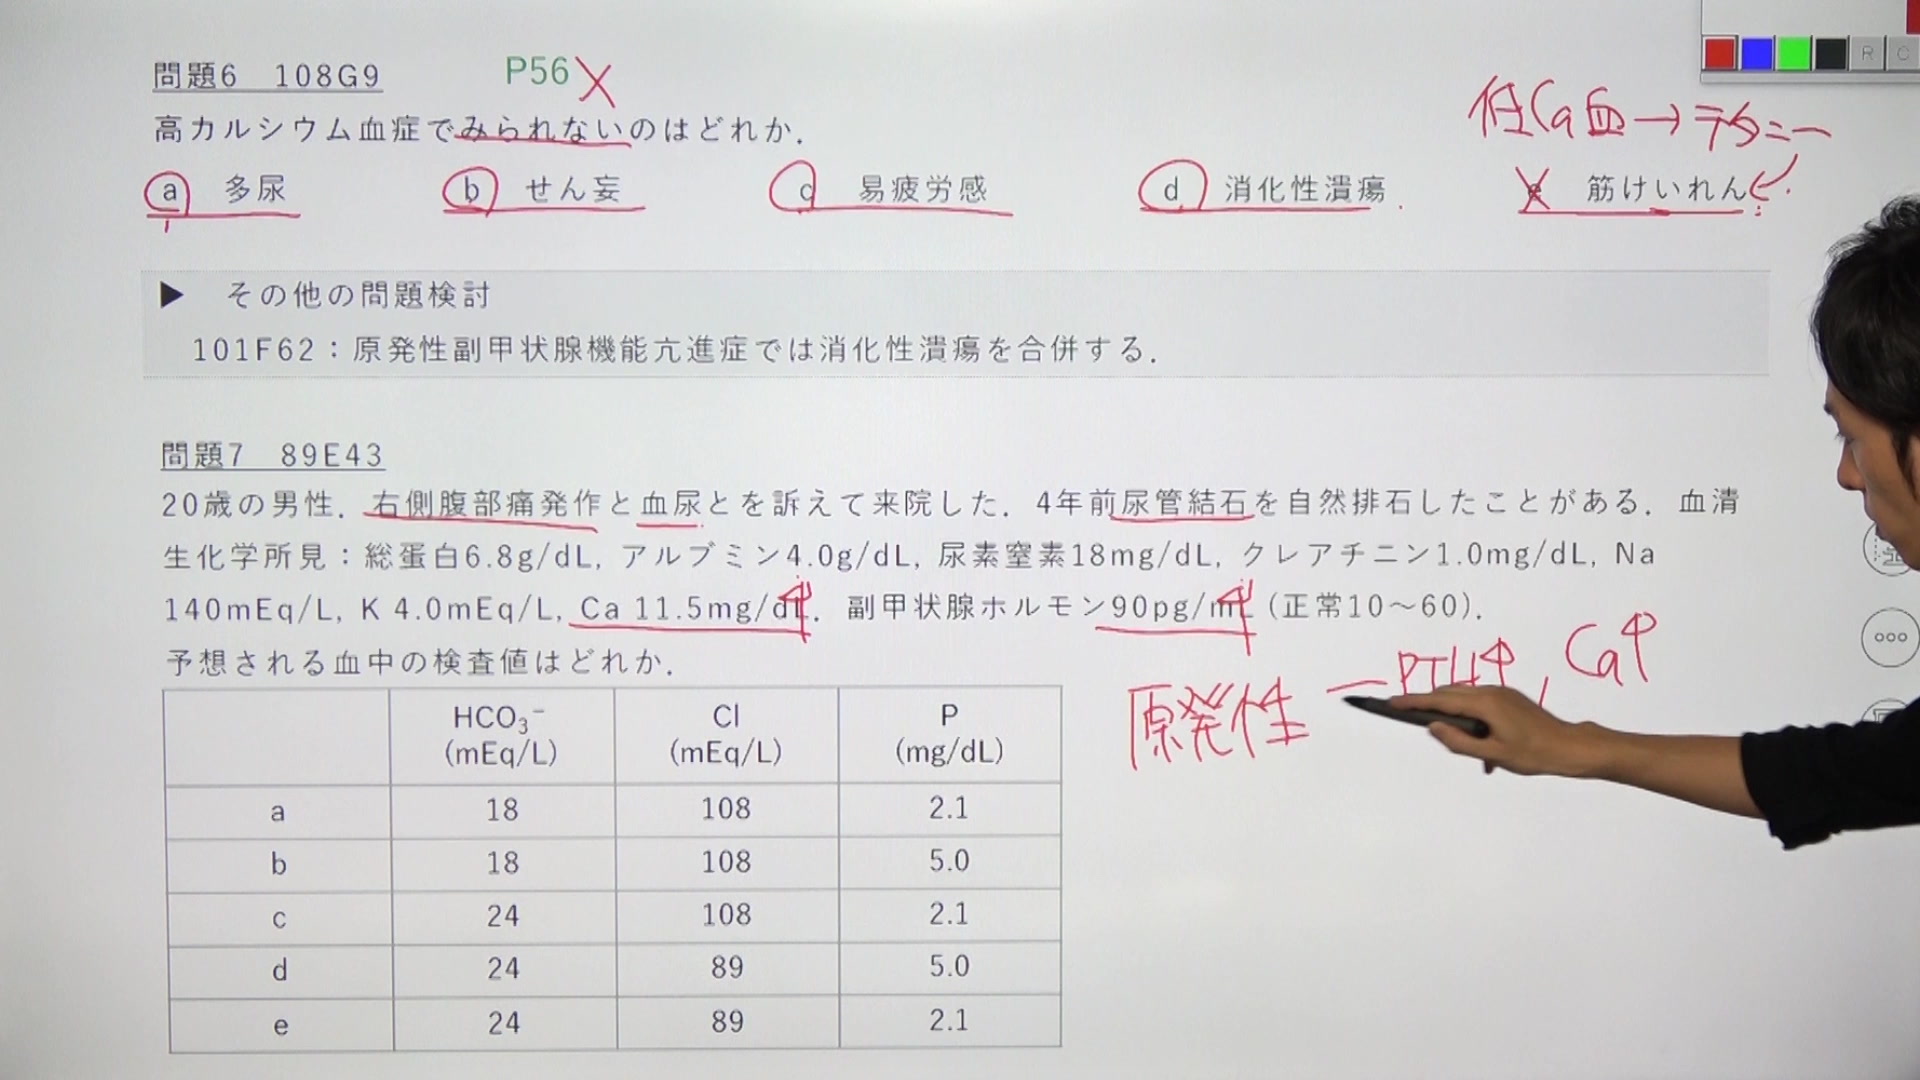 問題6 108G9 P56
高カルシウム血症でみられないのはどれか.
低Ca血→テタニー
a 多尿 b せん妄 c 易疲労感 d 消化性潰瘍 e 筋けいれん
▶ その他の問題検討
101F62：原発性副甲状腺機能亢進症では消化性潰瘍を合併する.
問題7 89E43
20歳の男性. 右側腹部痛発作と血尿とを訴えて来院した. 4年前尿管結石を自然排石したことがある. 血清
生化学所見：総蛋白6.8g/dL, アルブミン4.0g/dL, 尿素窒素18mg/dL, クレアチニン1.0mg/dL, Na
140mEq/L, K 4.0mEq/L, Ca 11.5mg/dL. 副甲状腺ホルモン90pg/mL (正常10〜60).
予想される血中の検査値はどれか.
原発性 ー PTH↑, Ca↑
HCO₃⁻ Cl P
(mEq/L) (mEq/L) (mg/dL)
a 18 108 2.1
b 18 108 5.0
c 24 108 2.1
d 24 89 5.0
e 24 89 2.1
R C